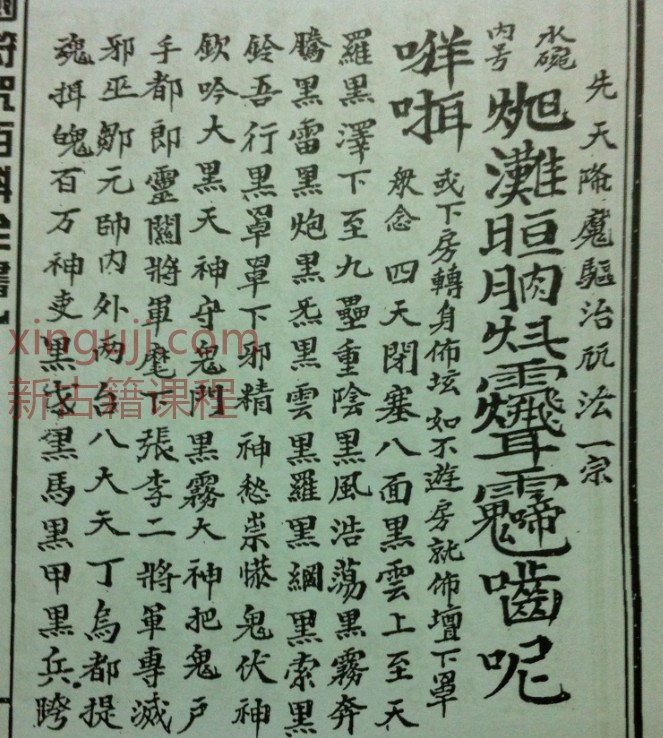 先天降魔驅治法一宗
水碗
内号
灘晅朒嚙呢
或下房轉身佈坛如不遊房就佈壇下罩
衆念 四天閉塞八面黑雲上至天
羅黑澤下至九壘重陰黑風浩蕩黑霧奔
騰黑雷黑炮黑炁黑雲黑羅黑綱黑索黑
鈴吾行黑罩罩下邪精神愁祟慌鬼伏神
欽吟大黑天神守鬼門黑霧大神把鬼户
手都郎靈關將軍麾下張李二將軍專滅
邪巫鄒元帥内外两台八大天丁烏都提
魂挕魄百万神吏黑伐黑馬黑甲黑兵跨
符咒百科全書
xinguji.com
新古籍课程